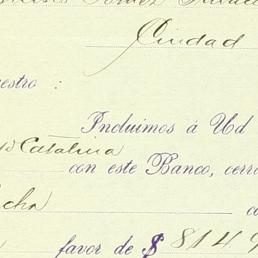 Ciudad
estro :
Incluimos á Ud
Catalina
con este Banco, cerra
cha
co
favor de $ 8149